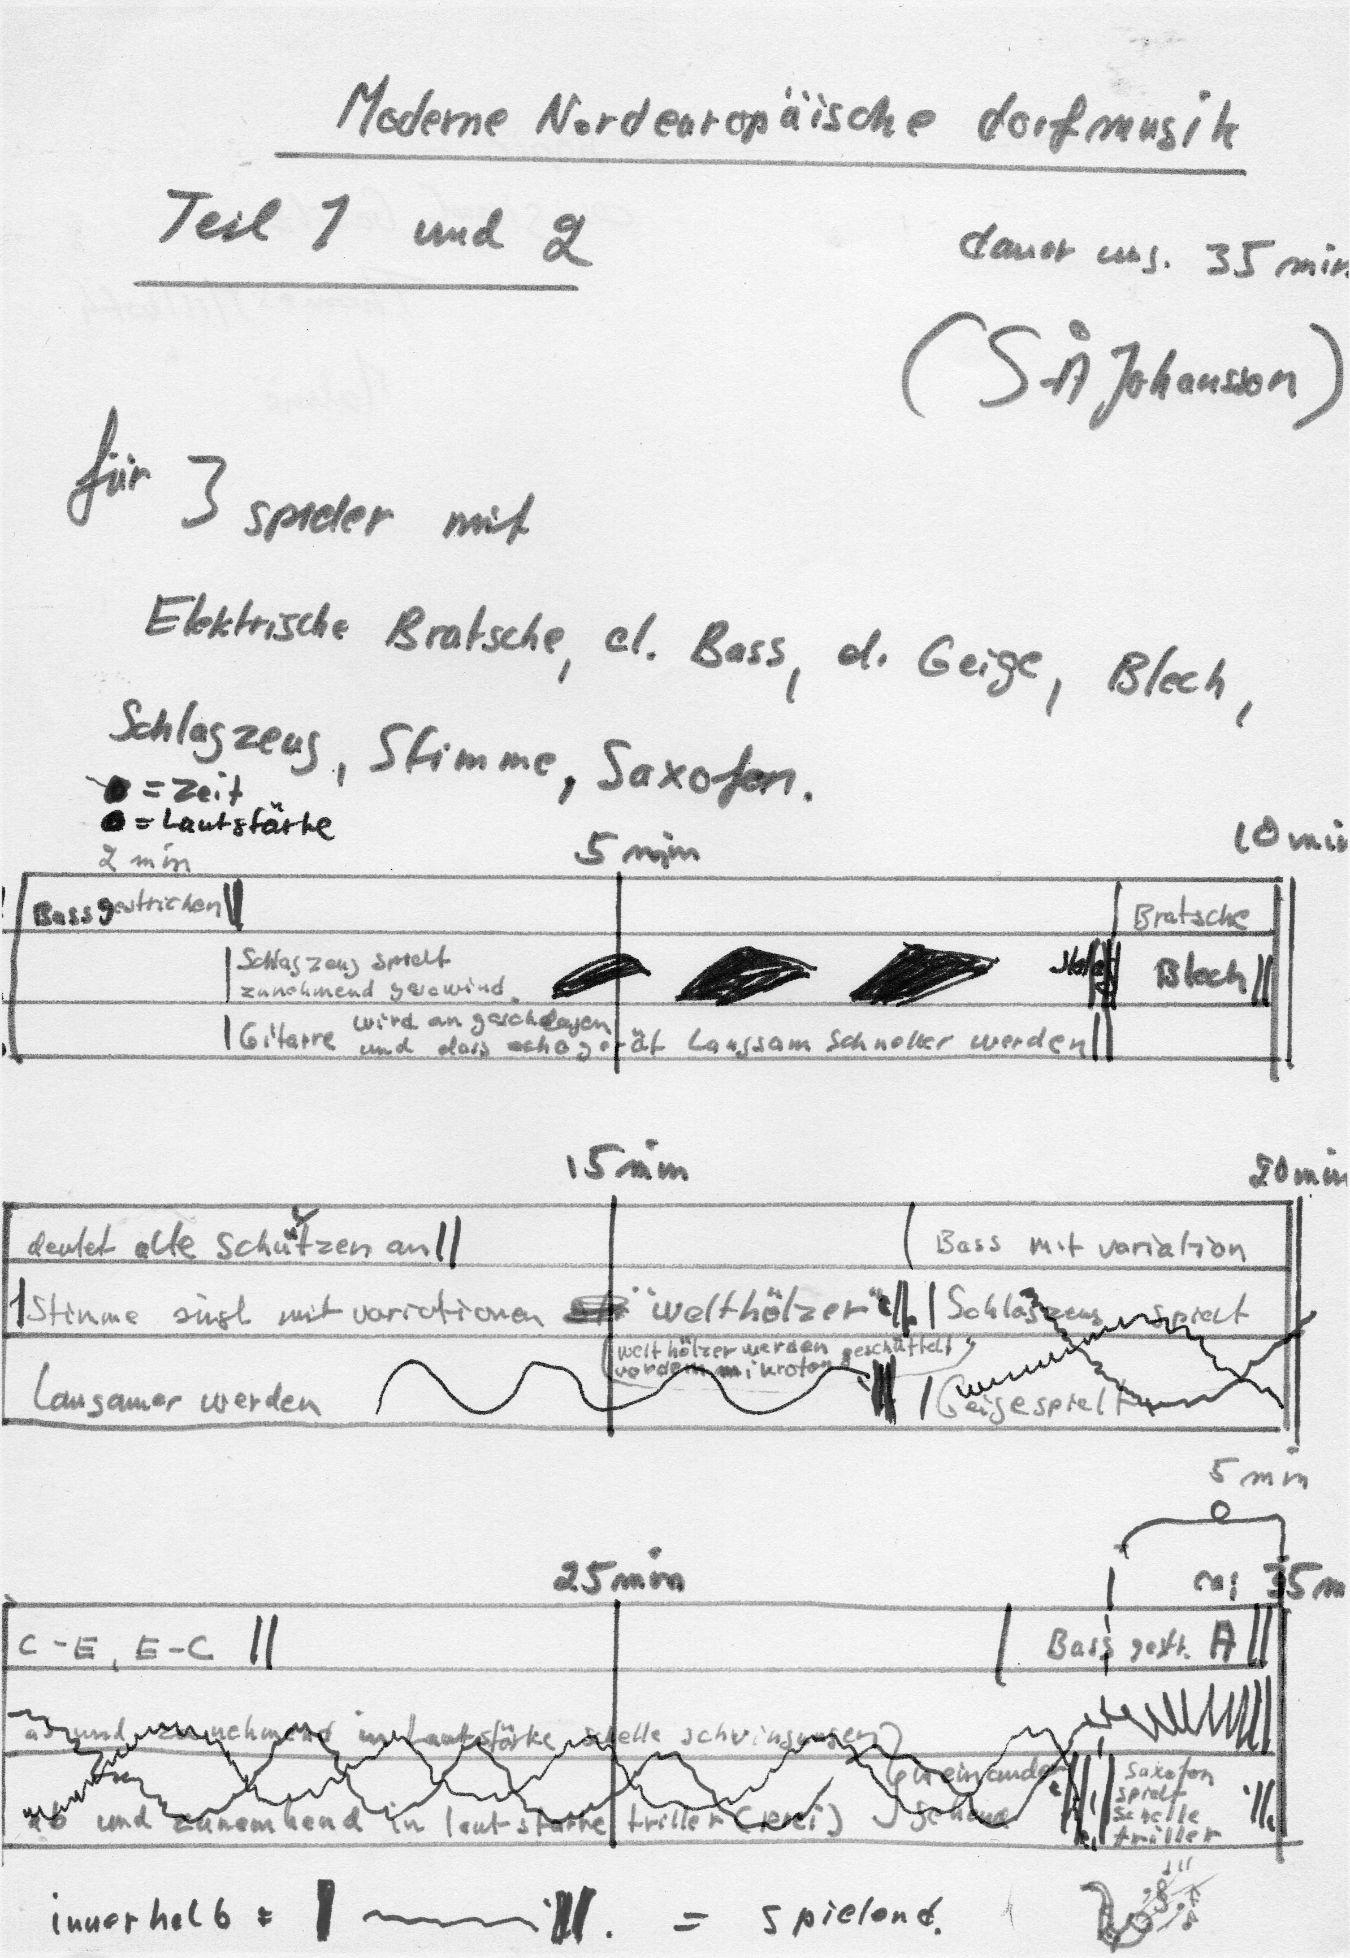 Moderne Nordeuropäische dorfmusik
Teil 1 und 2
dauer 35 min
(S-Å Johansson)
für 3 spieler mit
Elektrische Bratsche, el. Bass, el. Geige, Blech,
Schlagzeug, Stimme, Saxofon.
= Zeit
= Lautstärke
2 min
5 min
10 min
Bass gestrichen
Bratsche
Schlagzeug spielt
zunehmend
Blech
Gitarre wird an geschlagen
und das echogerät Langsam schneller werden
15 min
20 min
deutet alte Schützen an
Bass mit variation
Stimme singt mit variationen "welthölzer"
Schlagzeug spielt
welthölzer werden geschüttelt
vor dem mikrofon
Langsamer werden
Geige spielt
5 min
25 min
35 m
C-E, E-C
Bass gestr. A
ab und zunehmend in Lautstärke schelle schwingungen
ab und zunemhend in lautstärke triller
saxofon
spielt
schelle
triller
innerhalb = spielend.